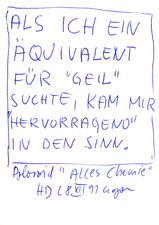 ALS ICH EIN
ÄQUIVALENT
FÜR "GEIL"
SUCHTE, KAM MIR
"HERVORRAGEND"
IN DEN SINN.
Polaroid "Alles Chemie"
HD L8 XII 11